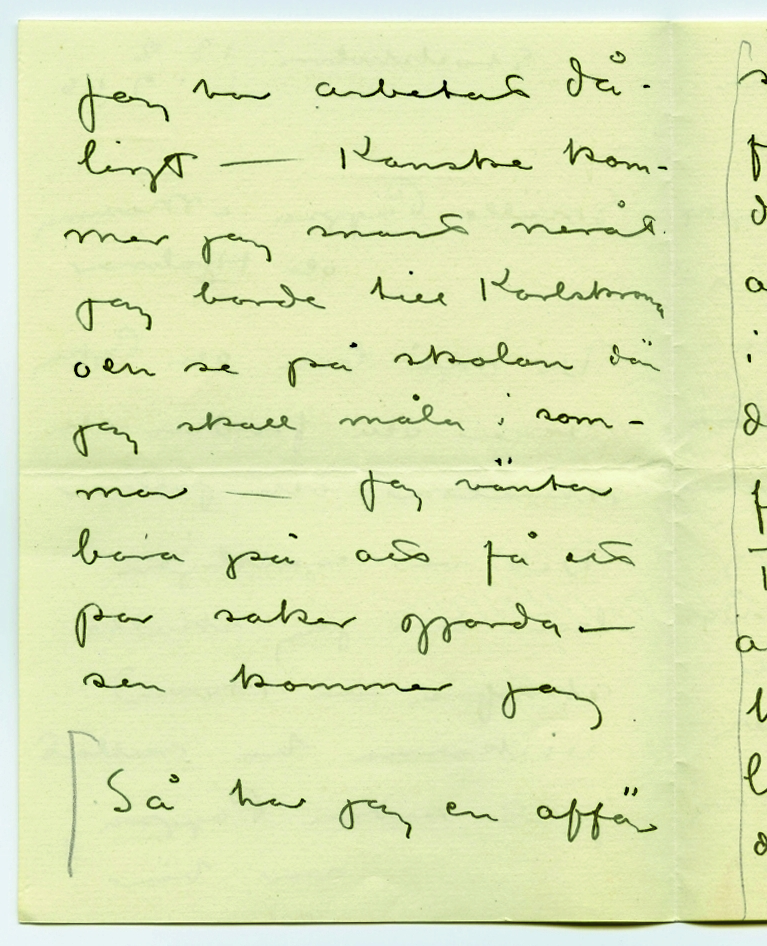 Jag har arbetat då-
ligt — Kanske kom-
mer jag snart neråt.
jag borde till Karlskrona
och se på skolan där
jag skall måla i som-
mar — Jag väntar
bara på att få ett
par saker gjorda —
sen kommer jag
Så har jag en affär